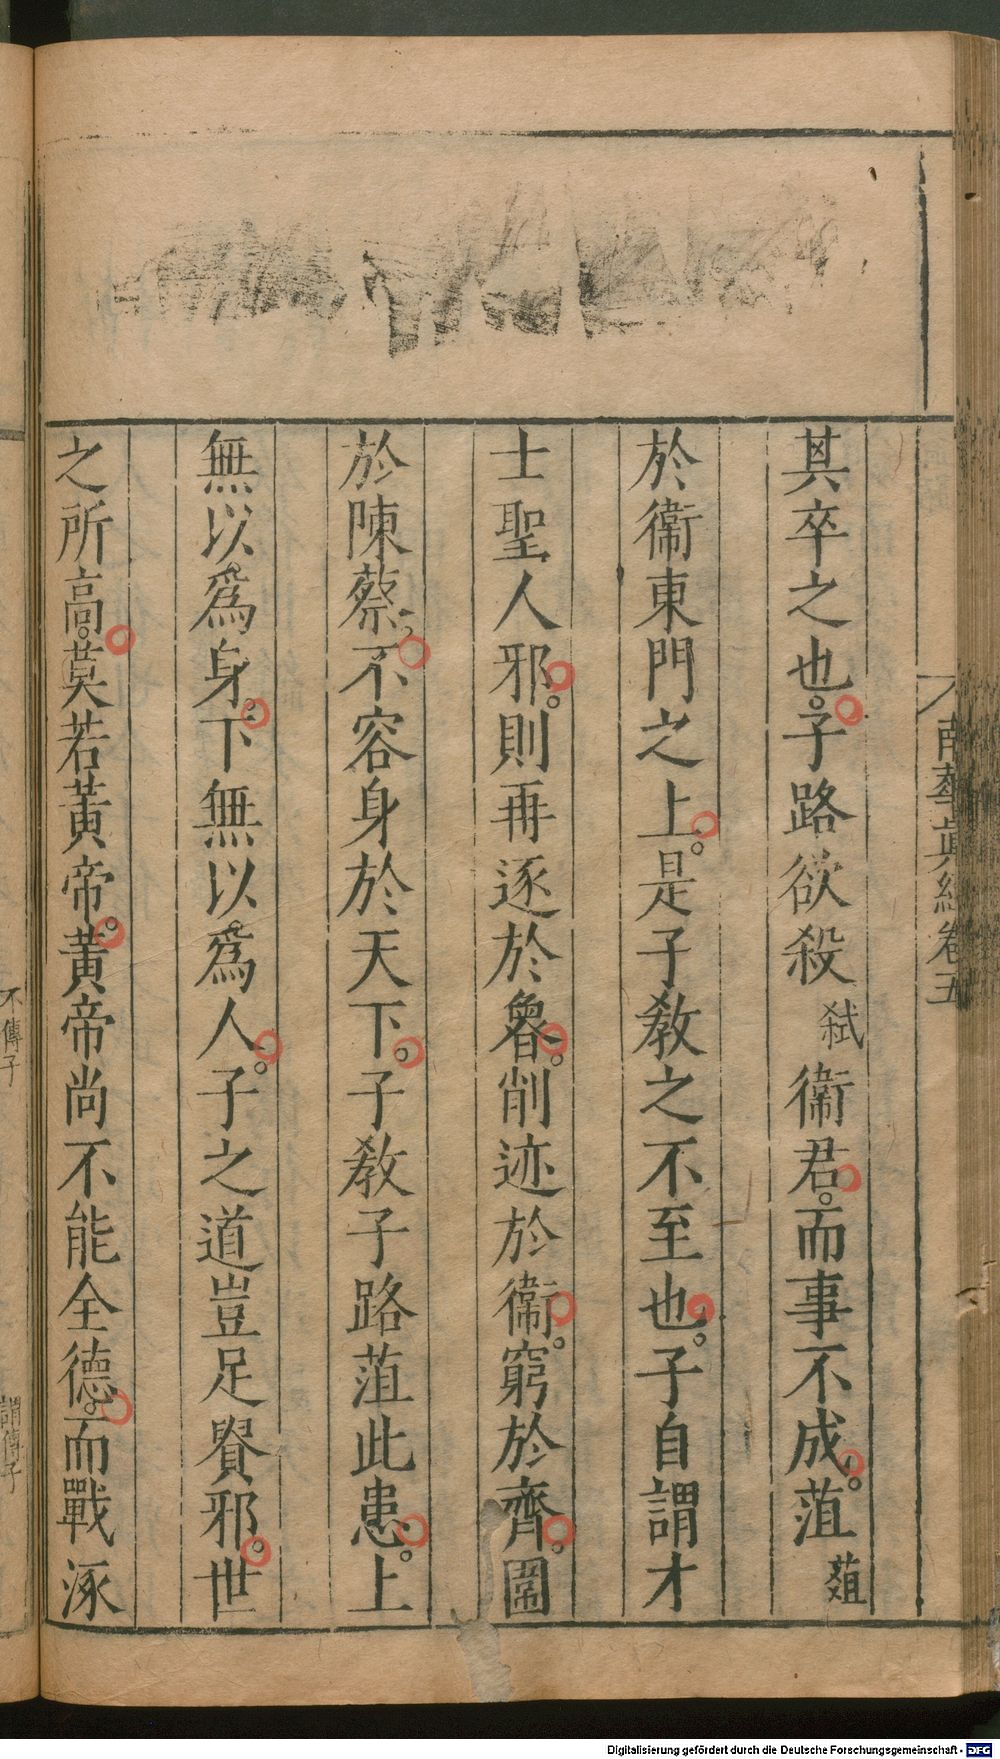 南華真經卷五
其卒之也。子路欲殺弑衞君。而事不成。菹葅
於衞東門之上。是子教之不至也。子自謂才
士聖人邪。則再逐於魯。削迹於衞。窮於齊。圍
於陳蔡。不容身於天下。子教子路菹此患。上
無以爲身。下無以爲人。子之道豈足貴邪。世
之所高。莫若黃帝。黃帝尚不能全德。而戰涿
不傳子
謂傳子
Digitalisierung gefördert durch die Deutsche Forschungsgemeinschaft - DFG